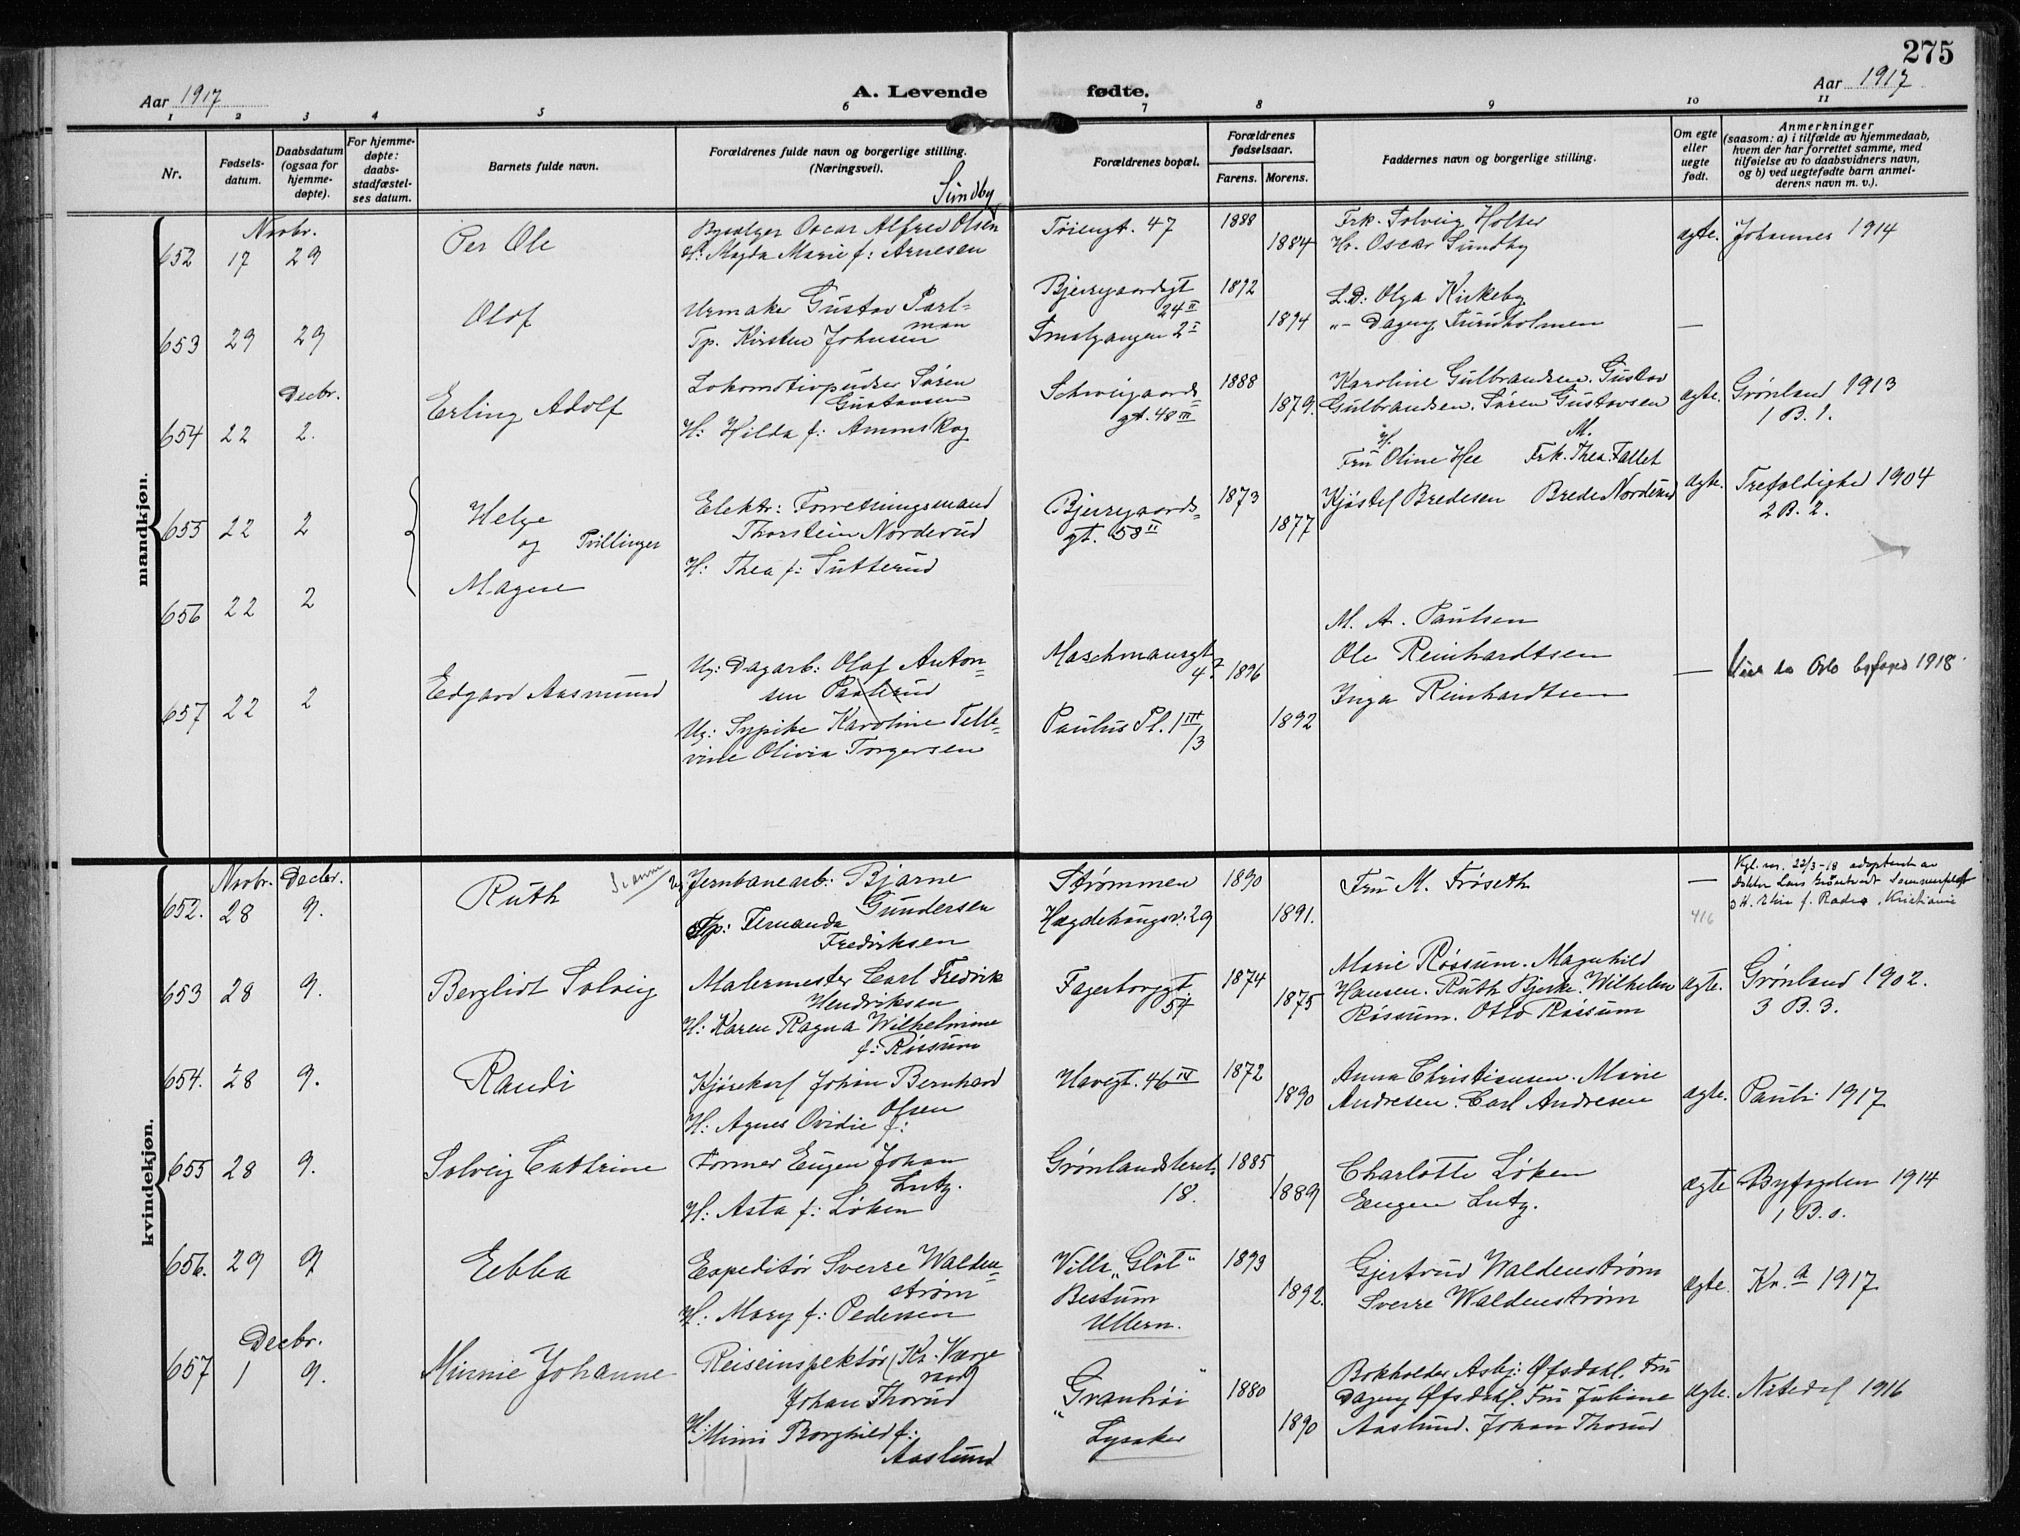 275
Aar 1917
A. Levende fødte.
Aar 1917
1 2 3 4 5 6 7 8 9 10 11
Nr.
Fødsels-
datum.
Daabsdatum
(ogsaa for
hjemme-
døpte).
For hjemme-
døpte:
daabs-
stadfæstel-
ses datum.
Barnets fulde navn.
Forældrenes fulde navn og borgerlige stilling.
(Næringsvei).
Forældrenes bopæl.
Forældrenes
fødselsaar.
Farens. Morens.
Faddernes navn og borgerlige stilling.
Om egte
eller
uegte
født.
Anmerkninger
(saasom: a) i tilfælde av hjemmedaab,
hvem der har forrettet samme, med
tilføielse av to daabsvidners navn,
og b) ved uegtefødte barn anmel-
derens navn m. v.).
mandkjøn.
Novbr.
652 17 29
Per Ole
Sundby
Oscar Alfred Olsen
H: Magda Marie f: Arnesen
Tøiengt. 47
1888
1884
Frk. Solveig Holter
Hr. Oscar Sundby
ægte.
Johannes 1914
653 29 29
Olof
Urmaker Gustav Parl-
man
Tp. Kirsten Johnsen
Bjerregaardsgt
24 II
Smalgangen 2 I
1892
1894
L.D: Olga Kirkeby
"- Dagny Furuholmen
—
Decbr.
654 22 2.
Erling Adolf
Lokomotivpudser Søren
Gustavsen
H: Hilda f: Ammskog
Schweigaards-
gt. 48 III
1888
1879.
Karoline Gulbrandsen. Gustav
Gulbrandsen. Søren Gustavsen
ægte.
Grønland 1913
1 B. 1.
655 22 2
Helge
og Tvillinger
Magne
656 22 2
Elektr: Forretningsmand
Thorstein Norderud
H: Thea f: Sutterud
Bjerregaards-
gt. 58 II
1873
1877
Fru Oline Hee Frk. Thea Fallet
Kjøstel Bredesen Brede Norderud
ægte.
Trefoldighe 1904
2 B. 2.
657 22 2
Edgard Aasmund
Ug: Dagarb: Olaf Anton-
sen Paulsrud
Ug: Sypike Karoline Telle-
vine Olivia Torgersen
Maschmansgt
4
Paulus Pl. 1 III/3
1896
1892
M. A. Paulsen
Ole Reinhardtsen
Inga Reinhardtsen
—
Oslo byfoged 1918
kvindekjøn.
Novbr. Decbr.
652. 28 9.
Ruth
Ug Jernbanearb. Bjarne
Gundersen
Tp: Fernanda
Fredriksen
Strømmen
Hægdehaugsv. 29
1890
1891.
Fru M. Frøseth
—
416
Kgl. res. 22/3-18 adopteret av
doktor Lars
Kristiania
653 28 9.
Bergliot Solveig
Malermester Carl Fredrik
Hendriksen
H: Karen Ragna Wilhelmine
f: Røssum
Fagerborggt
54
1874
1875
Marie Røssum. Magnhild
Hansen. Ruth Bjerke. Wilhelm
Røssum. Otto Røssum
ægte.
Grønland 1902.
3 B. 3.
654. 28 9.
Randi
Kjørekarl Johan Bernhard
Olsen
H: Agnes Ovidie f:
Havegt. 46 IV
1872
1890
Anna Christiansen. Marie
Andresen. Carl Andresen
ægte.
Pauli 1917
655 28 9.
Solveig Cathrine
Former Eugen Johan
Lutz.
H: Asta f: Løken
Grønlandsleret
18.
1885
1889
Charlotte Løken
Eugen Lutz.
ægte
Byfogden 1914
1 B. 0.
656. 29 9
Ebba
Expeditør Sverre Walden-
strøm
H: Mary f: Pedersen
Villa "Gløt"
Bestum
Ullern.
1893
1892.
Gjertrud Waldenstrøm
Sverre Waldenstrøm
ægte.
Kr.a 1917
Decbr.
657 1 9.
Minnie Johanne
Reiseinspektør (Kr. Værge
raad
Johan Thorud
H: Mimi Borghild f:
Aaslund
"Granbøi"
Lysaker
1880
1890
Bokholder Asbj: Øfsdahl. Fru
Dagny Øfsdahl. Fru Juliane
Aaslund. Johan Thorud
ægte.
Nitedal 1916